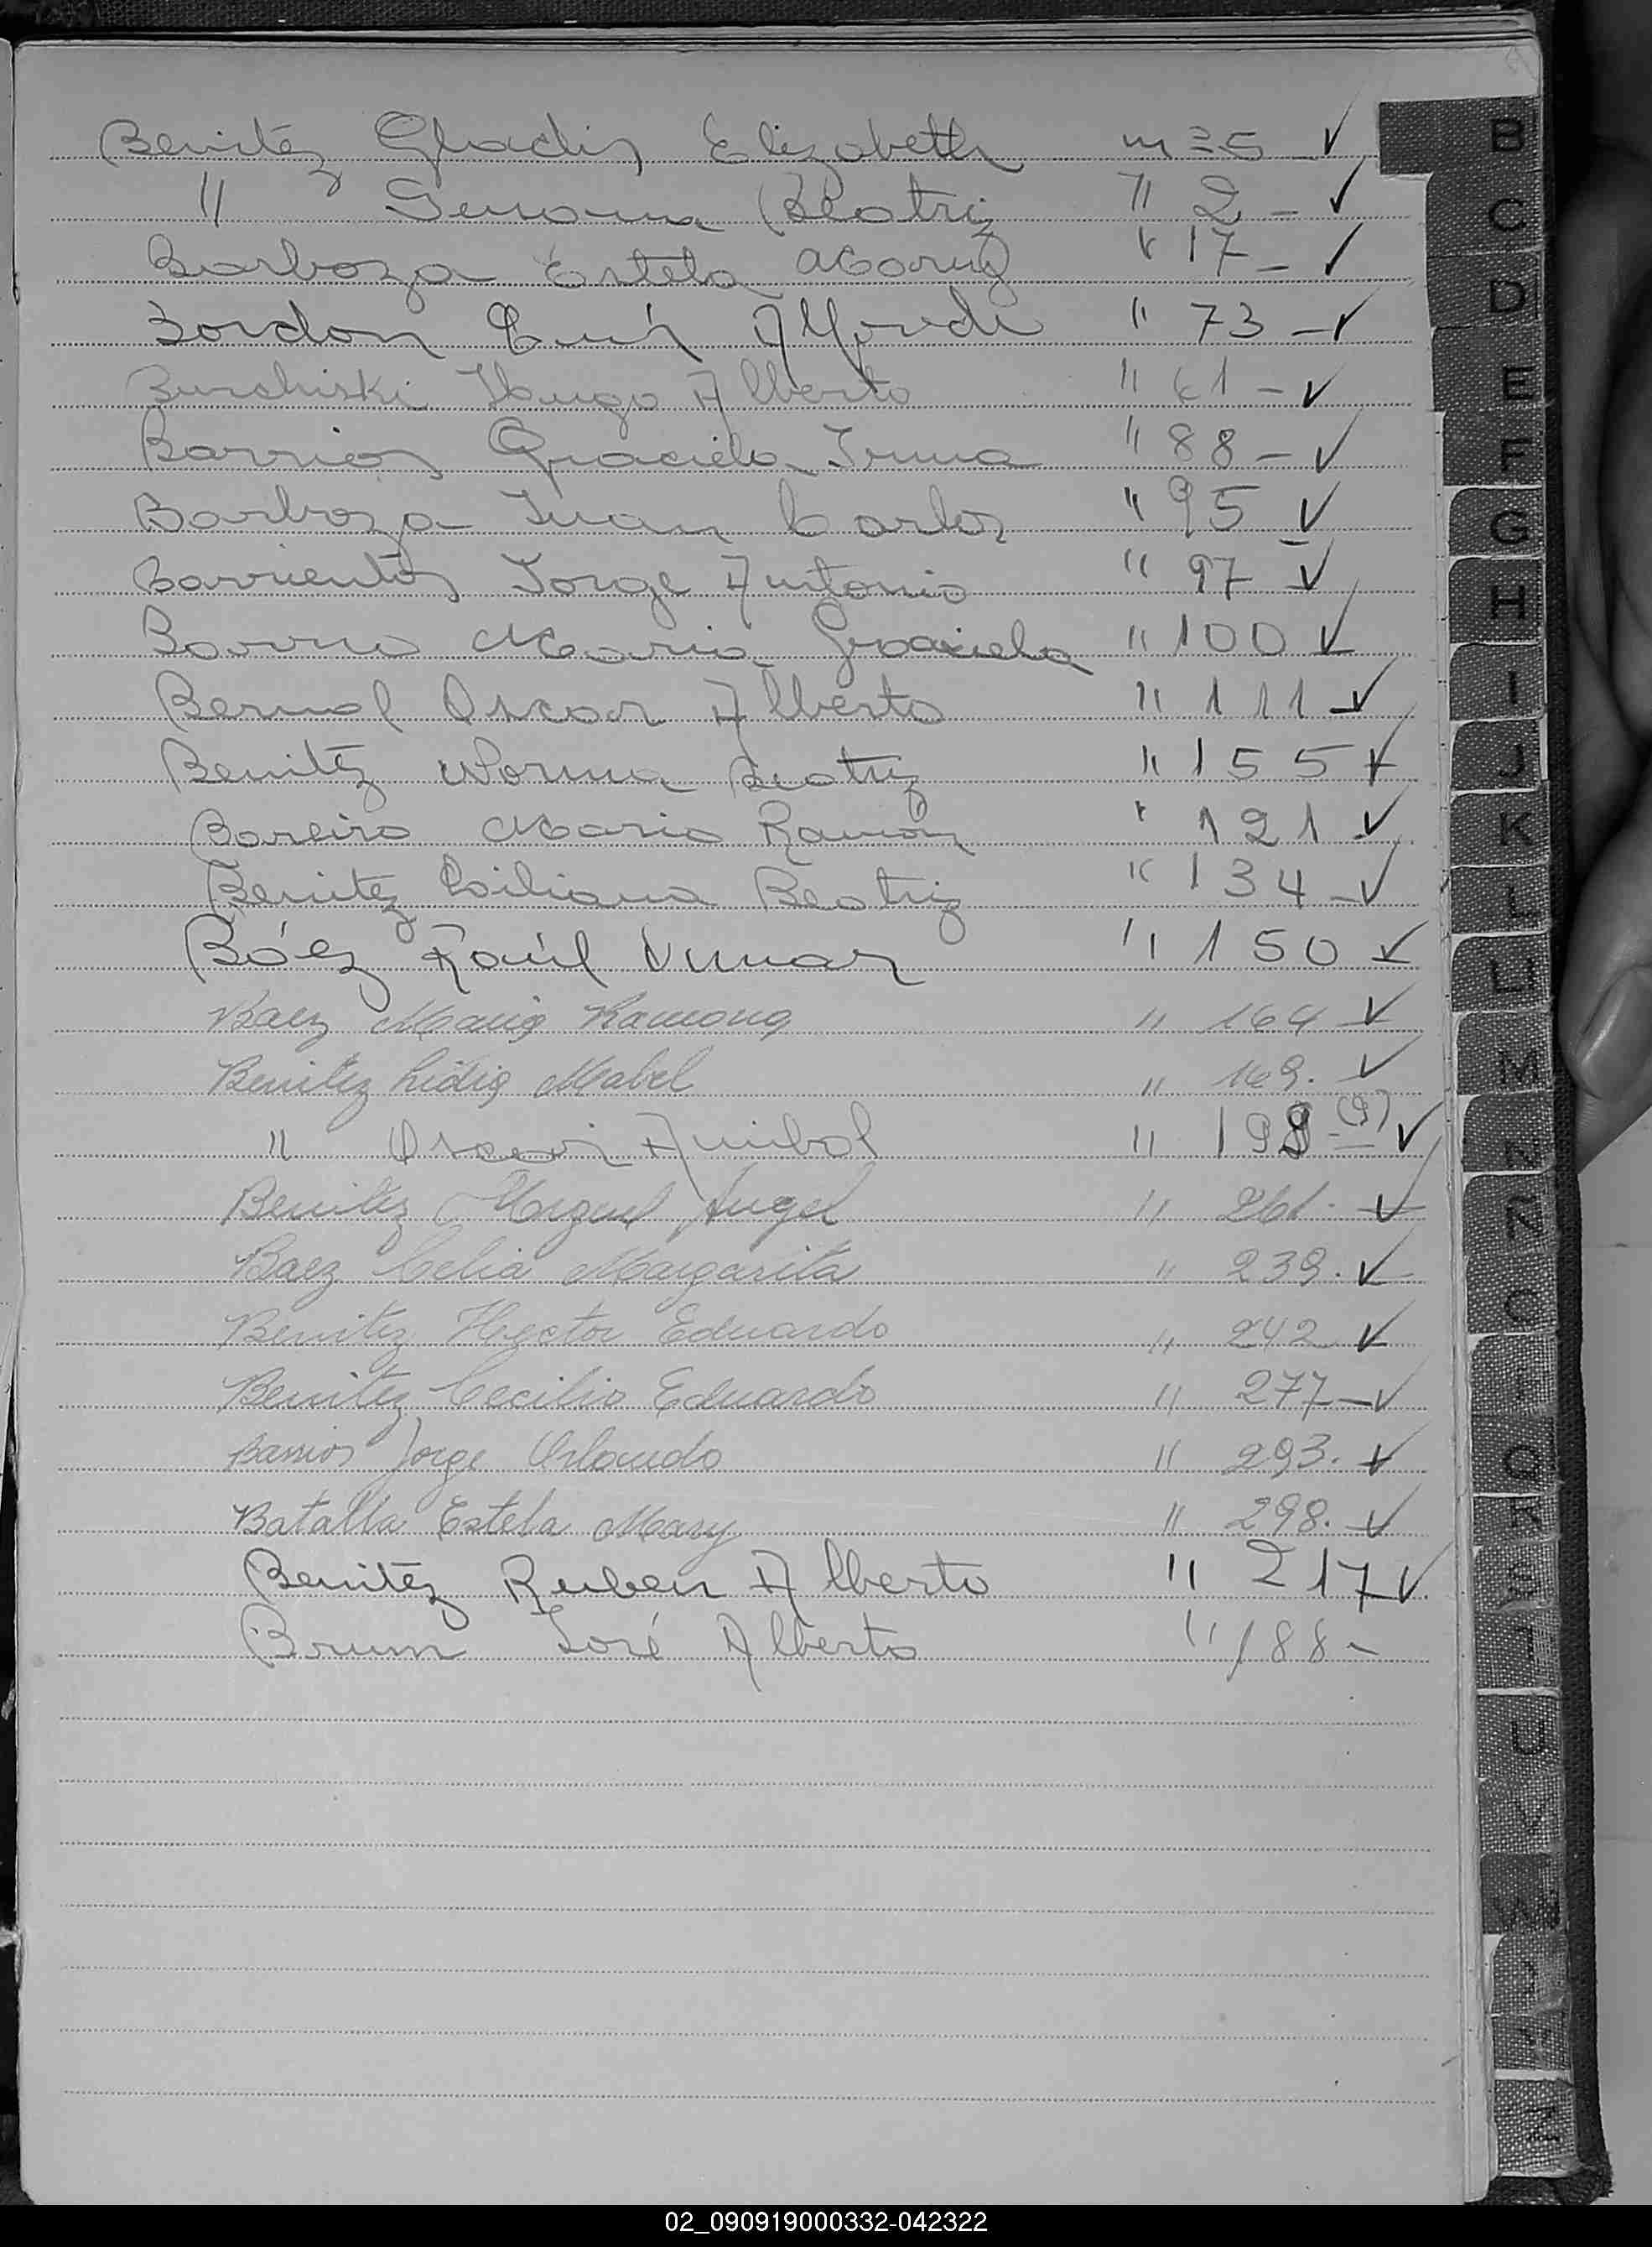 Benitez Gladis Elizabeth nº 5 ✓ B
" Genoma Beatriz " 2 - ✓ C
Barboza Estela Mary " 17 - ✓
Bordon Luis Alfredo " 73 - ✓ D
Burchiski Hugo Alberto " 61 - ✓ E
Barrios Graciela Irma " 88 - ✓ F
Barboza Juan Carlos " 95 ✓ G
Barrientos Jorge Antonio " 97 - ✓ H
Barrio Maria Graciela " 100 ✓
Bernal Oscar Alberto " 111 - ✓ I
Benitez Norma Beatriz " 155 ✓ J
Bareiro Mario Ramón " 121 ✓ K
Benitez Liliana Beatriz " 134 - ✓ L
Báez Raúl Omar " 150 ✓ LL
Baez Maria Ramona " 164 ✓
Benitez Lidia Mabel " 169. ✓ M
" Oscar Anibal " 199 (9) - ✓ N
Benitez Miguel Angel " 261. ✓ Ñ
Baez Celia Margarita " 239. ✓
Benitez Hector Eduardo " 242 ✓ O
Benitez Cecilio Eduardo " 277 - ✓
Barrios Jorge Orlando " 293. ✓ Q
Batalla Estela Mary " 298. ✓ R
Benitez Ruben Alberto " 217 ✓ S
Brum José Alberto " 188 - T
U
V
W
Z
02_090919000332-042322